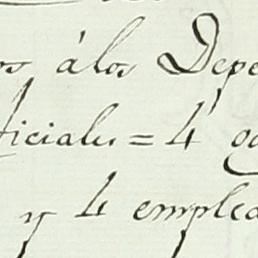 os álos Depe
ficiales = 4 og
y 4 emplea